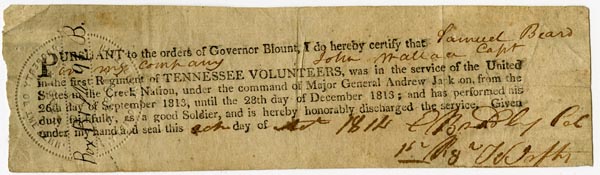 PURSUANT to the orders of Governor Blount, I do hereby certify that Samuel Beard
in my Company John Wallace Capt
in the first Regiment of TENNESSEE VOLUNTEERS, was in the service of the United
States in the Creek Nation, under the command of Major General Andrew Jackson, from the
26th day of September 1813, until the 28th day of December 1813; and has performed his
duty faithfully, as a good Soldier, and is hereby honorably discharged the service. Given
under my hand and seal this day of 1814 E Bradley Col
1st Regr